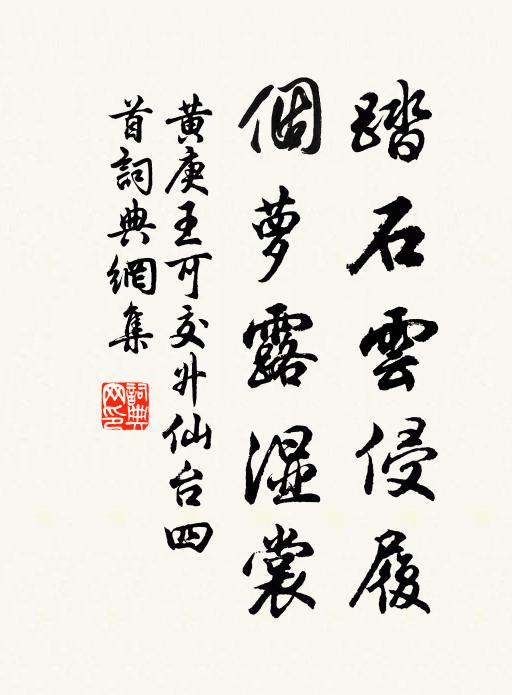 踏石雲侵履
個萝露湿裳
黃庚王可交升仙台四
首詞典網集
詞典
网印